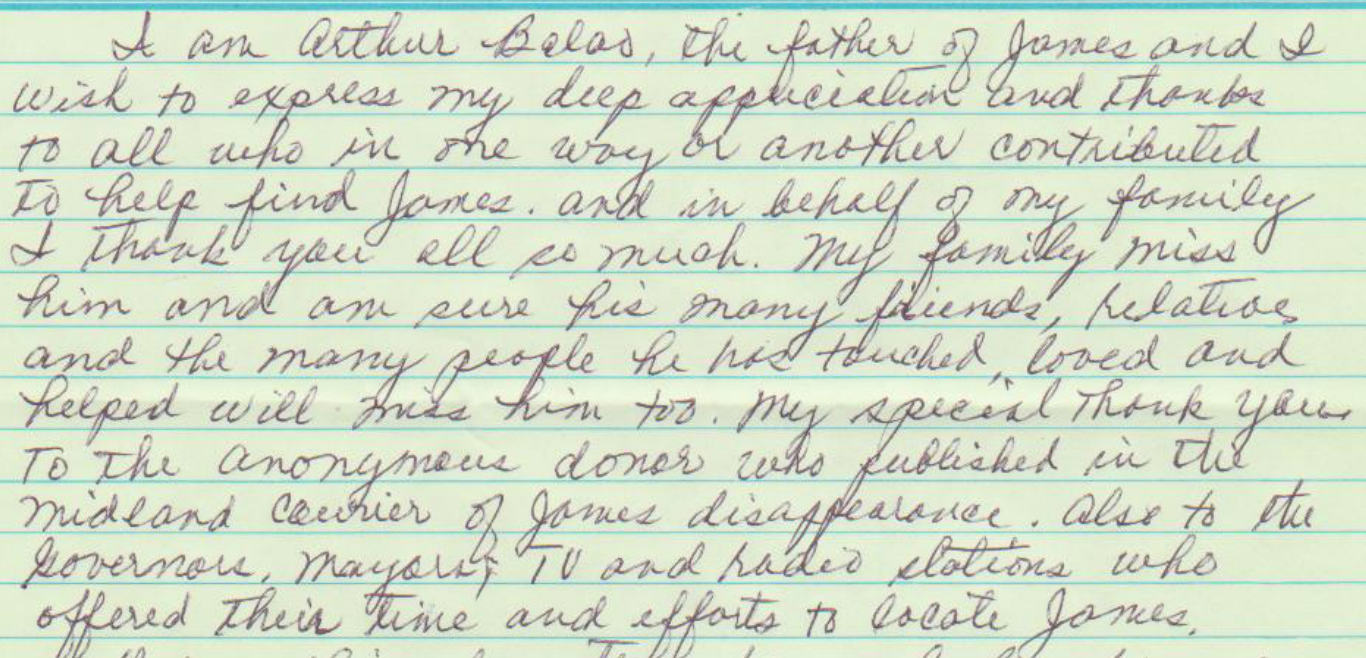 I am Arthur Balao, the father of James and I
wish to express my deep appreciation and thanks
to all who in one way or another contributed
to help find James. and in behalf of my family
I thank you all so much. My family miss
him and am sure his many friends, relatives
and the many people he has touched, loved and
helped will miss him too. My special thank you
to the anonymous donor who published in the
Midland Courier of James disappearance. Also to the
Governors, Mayors, TV and radio stations who
offered their time and efforts to locate James.